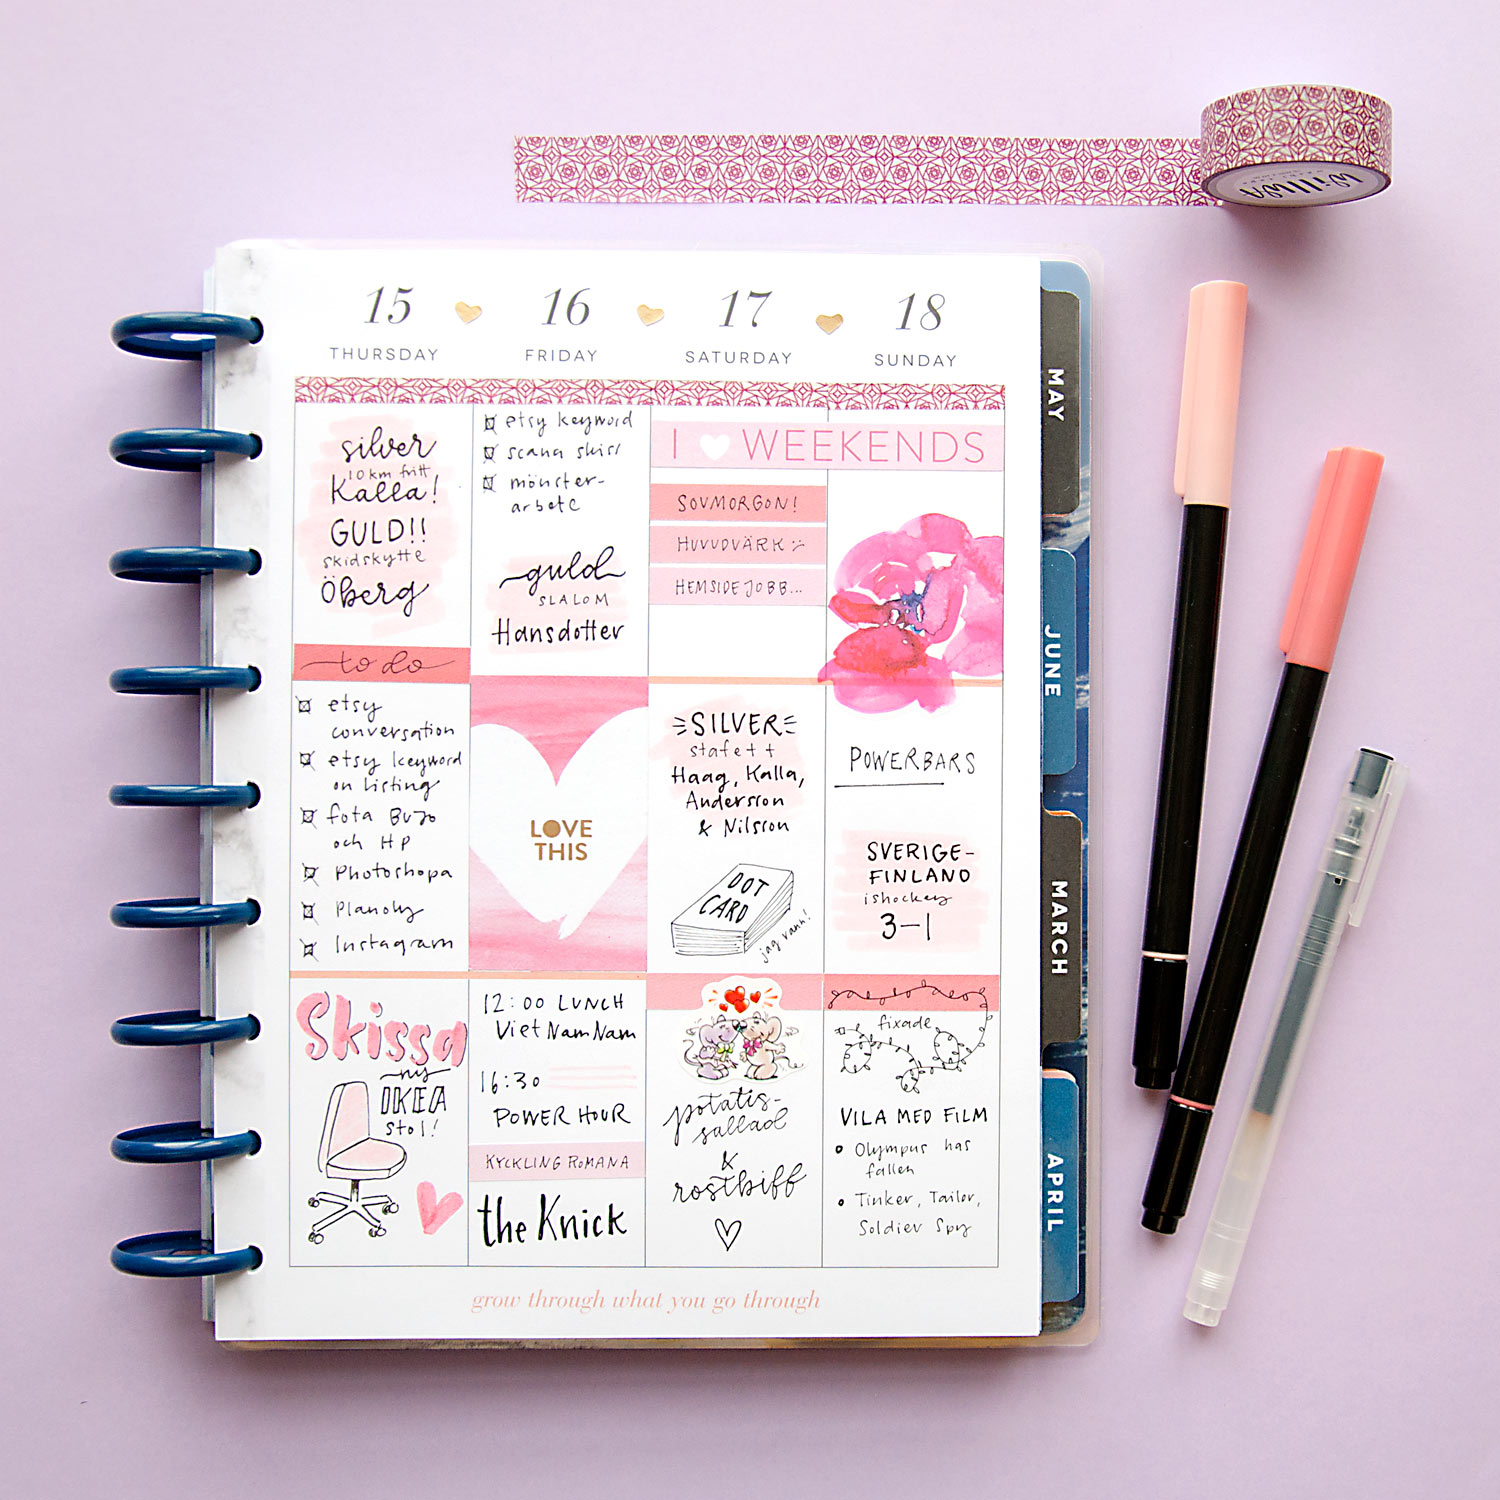 15
THURSDAY
16
FRIDAY
17
SATURDAY
18
SUNDAY
silver
10 km fritt
Kalla!
GULD!!
skidskytte
Öberg
to do
etsy
conversation
etsy keyword
on listing
fota BuJo
och HP
Photoshopa
Planoly
Instagram
Skissa
ny
IKEA
stol!
etsy keyword
scana skiss
mönster-
arbete
guld
SLALOM
Hansdotter
LOVE
THIS
12:00 LUNCH
VietNamNam
16:30
POWER HOUR
KYCKLING ROMANA
the Knick
I WEEKENDS
SOVMORGON!
HUVUDVÄRK :(
HEMSIDEJOBB...
SILVER
stafett
Haag, Kalla,
Andersson
& Nilsson
DOT
CARD
jag vann!
potatis-
sallad
&
rostbiff
POWERBARS
SVERIGE-
FINLAND
ishockey
3-1
fixade
VILA MED FILM
Olympus has
fallen
Tinker, Tailor,
Soldier Spy
grow through what you go through
MAY
JUNE
MARCH
APRIL